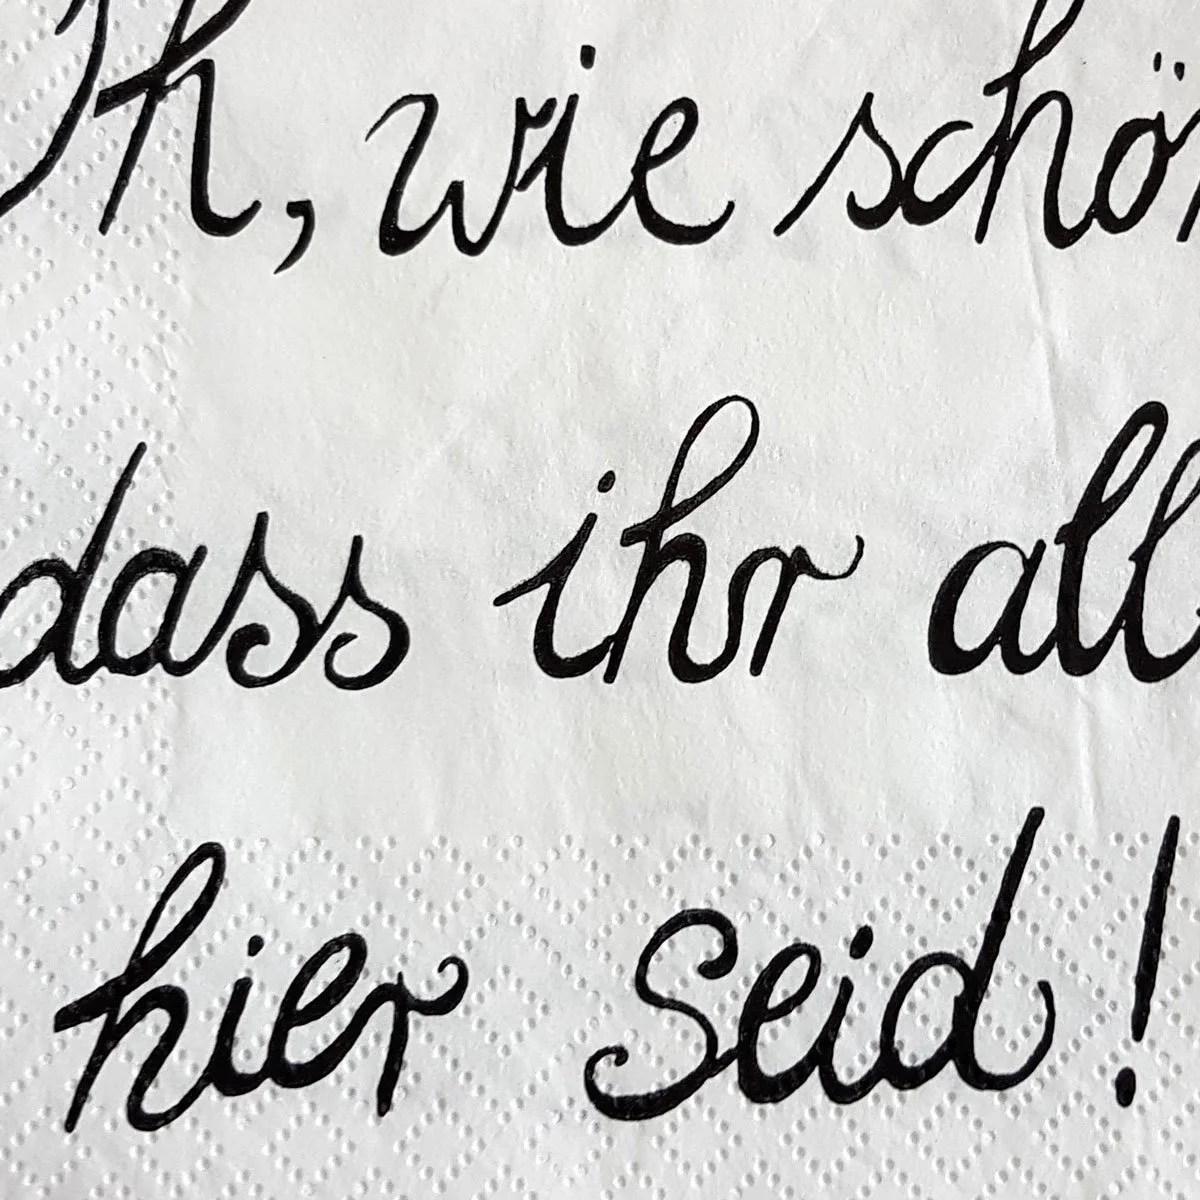 Oh, wie schön
dass ihr alle
hier seid!